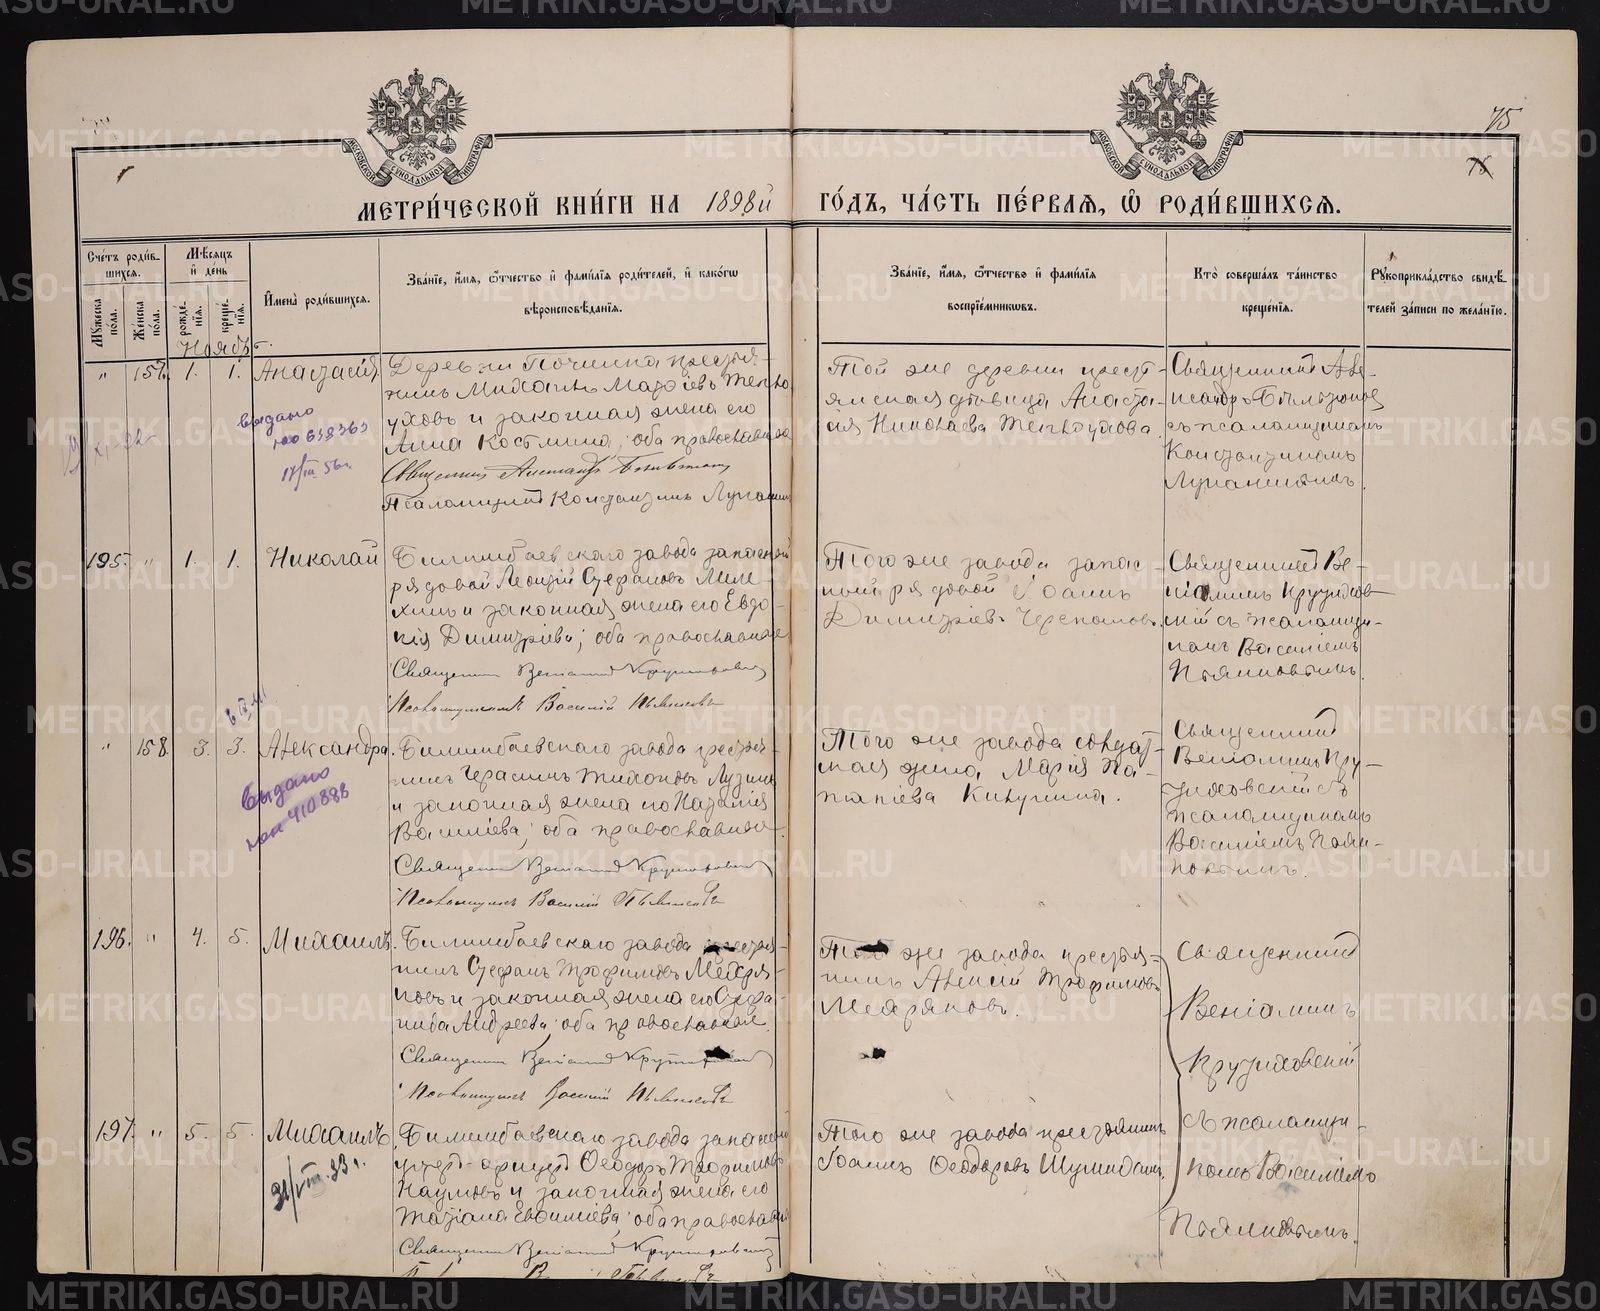 75
75
МОСКОВСКОЙ СѴНОДАЛЬНОЙ ТИПОГРАФІИ
МОСКОВСКОЙ СѴНОДАЛЬНОЙ ТИПОГРАФІИ
МЕТРИ́ЧЕСКОЙ КНИ́ГИ НА 1898й ГО́ДЪ, ЧА́СТЬ ПЕ́РВАЯ, Ѿ РОДИ́ВШИХСЯ.
Сче́тъ роди́в-
шихся.
Мꙋ́жеска по́ла.
Же́нска по́ла.
Мѣ́сяцъ
и҆ де́нь
рожде́-
нїя.
креще́-
нїя.
И҆мена̀ роди́вшихся.
Зва́нїе, и҆́мя, ѻ҆́тчество и҆ фами́лїя роди́телей, и҆ како́гѡ
вѣроисповѣ́данїя.
Зва́нїе, и҆́мя, ѻ҆́тчество и҆ фами́лїя
воспрїе́мниковъ.
Кто̀ соверша́лъ та́инство
креще́нїя.
Рꙋкоприкла́дство свидѣ́-
телей за́писи по жела́нїю.
Ноябрь.
" 157. 1. 1. Анастасія
Деревни Починка крестья-
нинъ Михаилъ
и законная жена его
Анна Космина; оба православные
Священникъ Александръ
Псаломщикъ Константинъ
Той же деревни крест-
янская дѣвица Анаста-
сія Николаева
Священникъ Але-
ксандръ
съ псаломщикомъ
Константиномъ
выдано
17/III 56г.
195. " 1. 1. Николай
Билимбаевскаго завода запасный
рядовой Леонтій Стефановъ Меле-
хинъ и законная жена его Евдо-
кія Димитріева; оба православные
Священникъ Веніаминъ Крутиховскій
Псаломщикъ Василій Пьянковъ
Того же завода запас-
ный рядовой Іоаннъ
Димитріевъ Черепановъ.
Священникъ Ве-
ніаминъ Крутихов-
скій съ псаломщи-
комъ Василіемъ
Пьянковымъ.
" 158 3. 3. Александра.
Билимбаевскаго завода крестья-
нинъ Герасимъ Тихоновъ Лузинъ
и законная жена его Наталія
Василіева; оба православные.
Священникъ Веніаминъ Крутиховскій
Псаломщикъ Василій Пьянковъ
Того же завода солдат-
ская жена Марія
Кикугина.
Священникъ
Веніаминъ Кру-
тиховскій съ
псаломщикомъ
Василіемъ Пьян-
ковымъ.
Выдано
410888
196. " 4. 5. Михаилъ.
Билимбаевскаго завода крестья-
нинъ Стефанъ Трофимовъ Медвря-
ковъ и законная жена его Стефа-
нида Андреева; оба православные.
Священникъ Веніаминъ Крутиховскій
Псаломщикъ Василій Пьянковъ
Того же завода крестья-
нинъ Алексій Трофимовъ
Священникъ
Веніаминъ
Крутиховскій
съ псаломщи-
комъ Василіемъ
Пьянковымъ.
197. " 5. 5. Михаилъ
31/VIII.33г.
Билимбаевскаго завода запасный
унтеръ-офицеръ Ѳеодоръ Трофимовъ
Наумовъ и законная жена его
Татіана Евфиміева; оба православные
Священникъ Веніаминъ Крутиховскій
Того же завода крестьянинъ
Іоаннъ Ѳеодоровъ Шумихинъ.